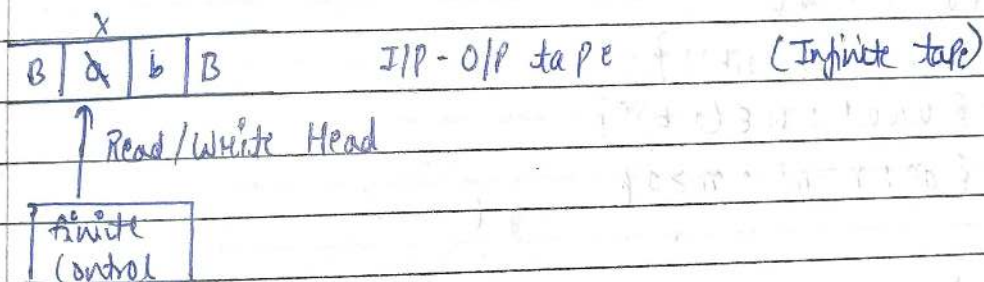 X
B | a | b | B I/P - O/P tape (Infinite tape)
Read/Write Head
finite
Control